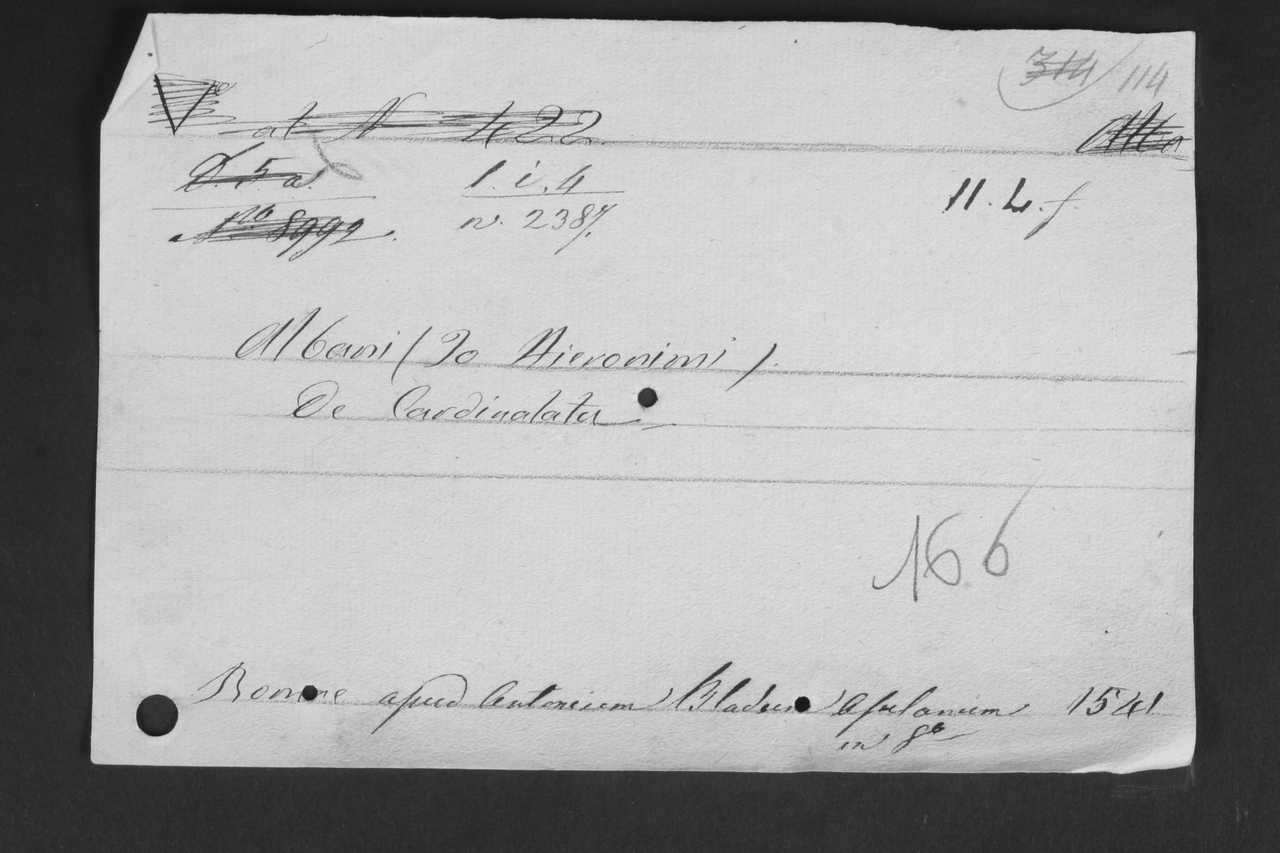 314/114
V
at N 422
D. 5. a. l. i. 4 11. L. f.
No 8992. n. 2387.
Albani (Jo Hieronimi).
De Cardinalatu
166
Romae apud Antonium Bladum Asulanum 1541
in 8o